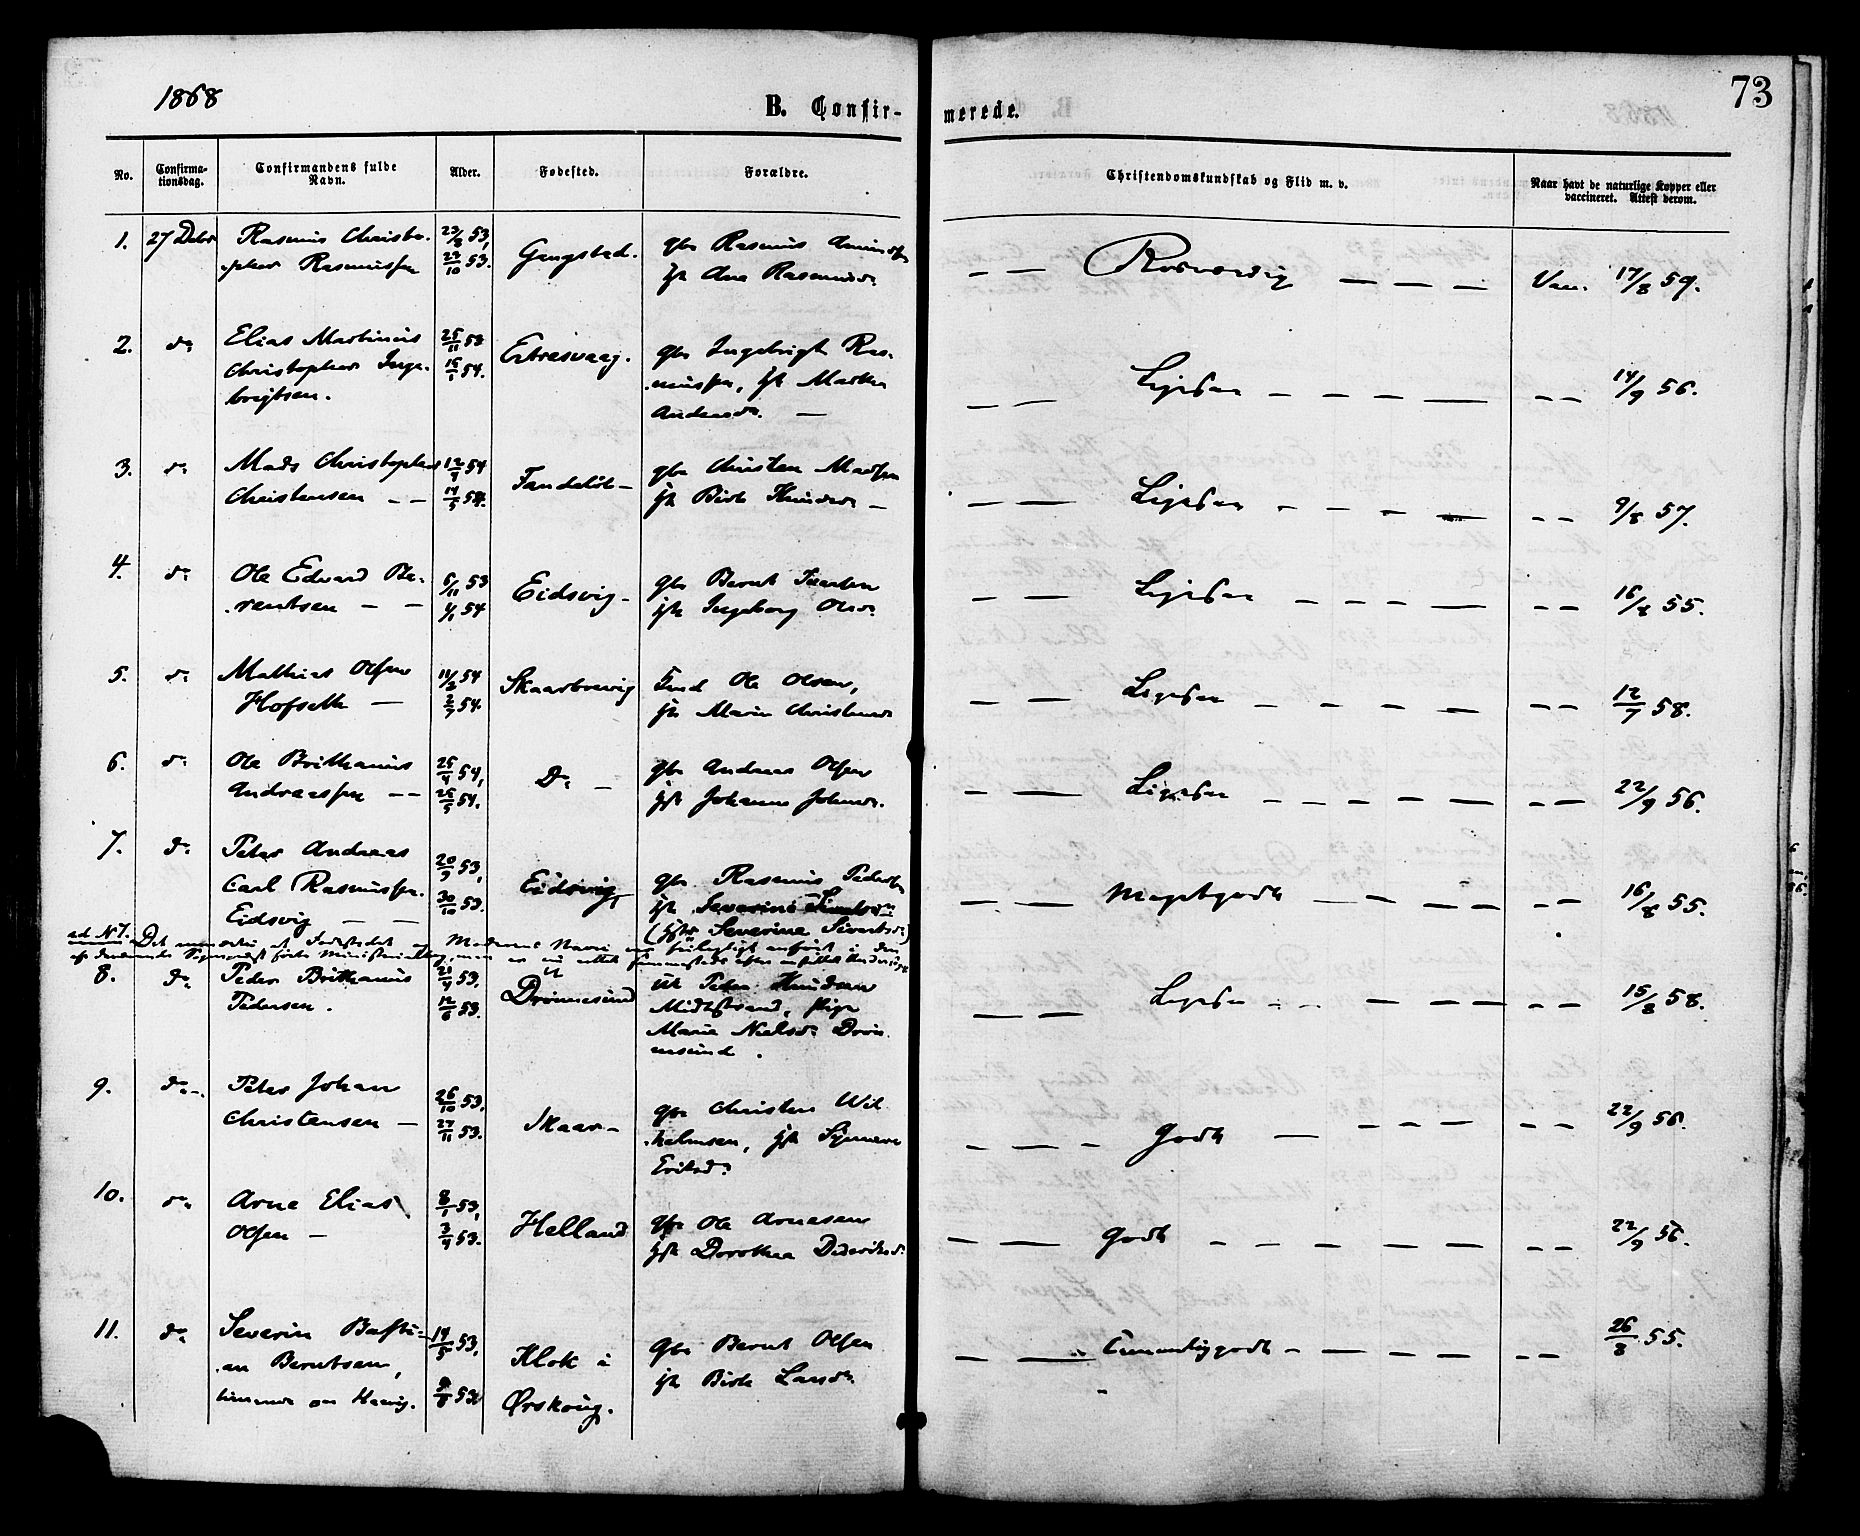 1868
B. Confir-
merede.
73
No.
Confirma-
tionsdag.
Confirmandens fulde
Navn.
Alder.
Fødested.
Forældre.
Christendomskundskab og Flid m. v.
Naar havt de naturlige Kopper eller
vaccineret. Attest derom.
1. 27 Debr Rasmus Christo-
pher Rasmussen
23/8 53,
23/10 53.
Gangstad.
gbr Rasmus
hst Ane Rasmusd.
Roesværdig
Vac. 17/8 59.
2. do Elias Martinus
Christopher Inge-
brigtsen.
25/11 53
15/1 54.
Extresvaag.
gbr Ingebrigt Ras-
mussen, hst Marthe
Andersd.
Ligesaa
14/9 56.
3. do Mads Christopher
Christensen
12/4 54
14/5 54.
gbr Christen Madssen
hst Birthe Knudsd.
Ligesaa
9/8 57.
4. do Ole Edvard Be-
rentsen
5/11 53
1/1 54
Eidsvig
gbr Bernt
hst Ingeborg Olsd.
Ligesaa
16/8 55.
5. do Mathias Olsen
Hofseth
11/2 54
2/7 54.
Skaarbrevig
Ind Ole Olsen,
hst Marie Christensd.
Ligesaa
12/7 58.
6. do Ole Brithanius
Andreassen
25/4 54,
25/5 54.
Do
gbr Andreas Olsen
hst Johanne Johnsd.
Ligesaa
22/9 56.
7. do Peter Andreas
Carl Rasmussen
Eidsvig
20/9 53,
30/10 53.
Eidsvig,
gbr Rasmus Pedersen
hst Severine
(hstr Severine Sivertsd.)
Megetgodt
16/8 55.
ad N 7. Det
8. do Peder Brithanius
Pedersen.
21/4 53,
12/6 53.
Drønnesund
Peter Knudsen
Midtstrand, Pige
Marie Nielsd. Drøn-
nesund.
Ligesaa
15/8 58.
9. do Peter Johan
Christensen
26/10 53,
27/11 53.
Skaar
gbr Christen Wil-
helmsen, hst Synneve
Eriksd.
Godt
22/9 56.
10. do Arne Elias
Olsen
8/1 53,
3/4 53.
Helland
gbr Ole Arnesen
hst Dorothea Dideriksd.
Godt
22/9 56.
11. do Severin Basti-
an Berntsen,
14/5 53,
Klok i
Ørskoug.
gbr Bernt Olsen
hst Birthe Larsd.
Temmeliggodt
26/8 55.